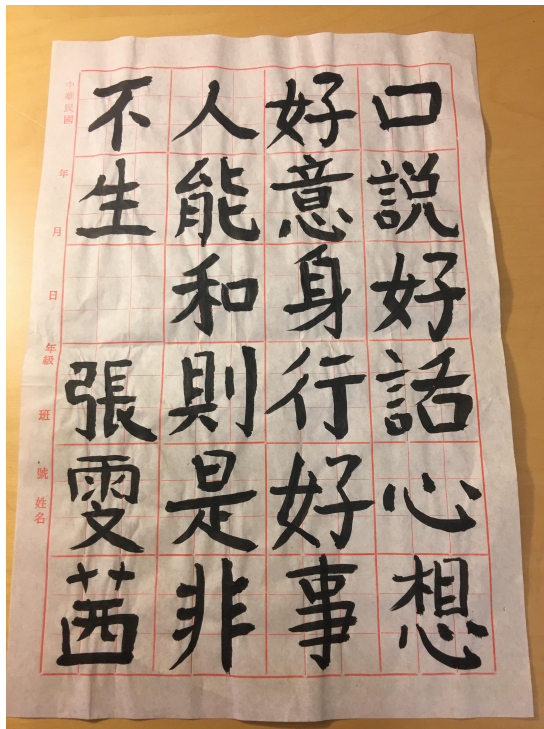 口說好話心想
好意身行好事
人能和則是非
不生 張雯茜
中華民國 年 月 日 年級 班 號 姓名